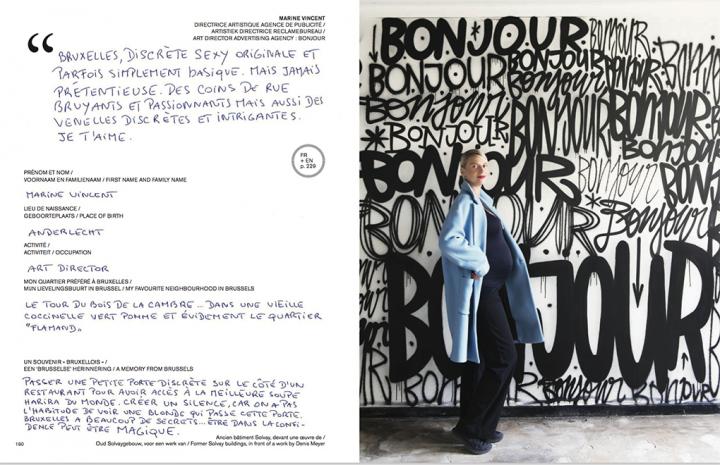 MARINE VINCENT
DIRECTRICE ARTISTIQUE AGENCE DE PUBLICITÉ /
ARTISTIEK DIRECTRICE RECLAMEBUREAU /
ART DIRECTOR ADVERTISING AGENCY : BONJOUR
“
BRUXELLES, DISCRÈTE SEXY ORIGINALE ET
PARFOIS SIMPLEMENT BASIQUE. MAIS JAMAIS
PRÉTENTIEUSE. DES COINS DE RUE
BRUYANTS ET PASSIONNANTS MAIS AUSSI DES
VENELLES DISCRÈTES ET INTRIGANTES.
JE T'AIME.
FR
+ EN
p. 229
PRÉNOM ET NOM /
VOORNAAM EN FAMILIENAAM / FIRST NAME AND FAMILY NAME
MARINE VINCENT
LIEU DE NAISSANCE /
GEBOORTEPLAATS / PLACE OF BIRTH
ANDERLECHT
ACTIVITÉ /
ACTIVITEIT / OCCUPATION
ART DIRECTOR
MON QUARTIER PRÉFÉRÉ À BRUXELLES /
MIJN LIEVELINGSBUURT IN BRUSSEL / MY FAVOURITE NEIGHBOURHOOD IN BRUSSELS
LE TOUR DU BOIS DE LA CAMBRE... DANS UNE VIEILLE
COCCINELLE VERT POMME ET ÉVIDEMENT LE QUARTIER
"FLAMAND„
UN SOUVENIR « BRUXELLOIS » /
EEN 'BRUSSELSE' HERINNERING / A MEMORY FROM BRUSSELS
PASSER UNE PETITE PORTE DISCRÈTE SUR LE CÔTÉ D'UN
RESTAURANT POUR AVOIR ACCÈS À LA MEILLEURE SOUPE
HARIRA DU MONDE. CRÉER UN SILENCE, CAR ON A PAS
L'HABITUDE DE VOIR UNE BLONDE QUI PASSE CETTE PORTE.
BRUXELLES A BEAUCOUP DE SECRETS... ÊTRE DANS LA CONFI-
DENCE PEUT ÊTRE MAGIQUE.
Ancien bâtiment Solvay, devant une œuvre de /
Oud Solvaygebouw, voor een werk van / Former Solvay buildings, in front of a work by Denis Meyer
160
BONJOUR
BONJOUR
BONJOUR
BONJOUR
BONJOUR
Bonjour
Bonjour
BONJOUR
BONJOUR
BONJOUR
BONJOUR
Bonjour
BONJOUR
Bonjour